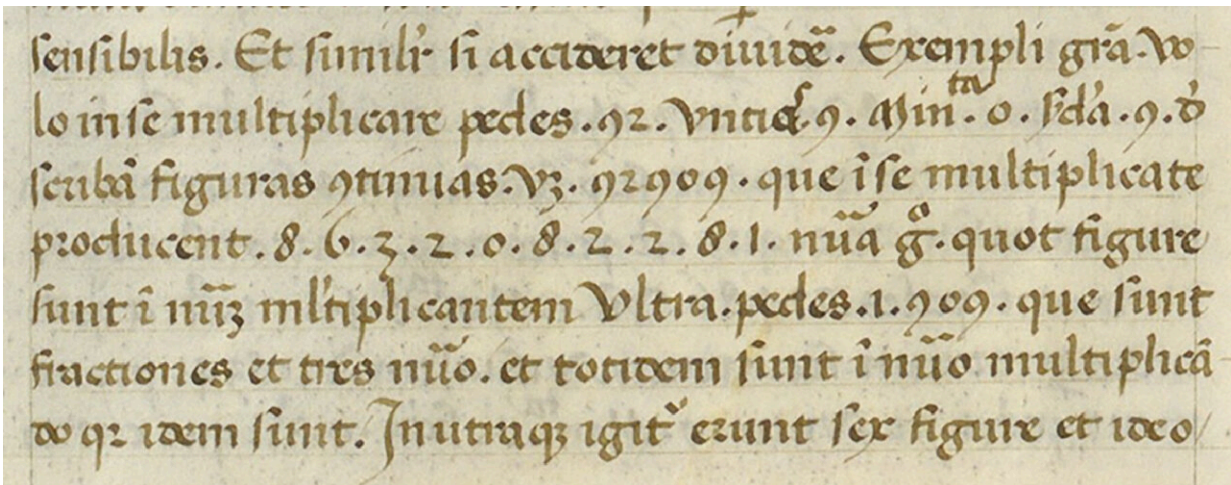 sensibilis. Et similr̃ si accideret diuidẽ. Exempli grã. Vo
lo in se multiplicare pedes . 92. Vntias. 9. Minᵗᵃ. 0. sc̃da. 9. d̃
scribã figuras ꝯtinuas. vꝫ. 92909. que ĩ se multiplicate
producent. 8. 6. 3. 2. 0. 8. 2. 2. 8. 1. nũa gͦ. quot figure
sunt ĩ nũꝫ ml̃tiplicantem Vltra. pedes. i. 909. que sunt
fractiones et tres nũo. et totidem sunt ĩ nũo multiplicã
do qꝛ idem sunt. In utraqꝫ igit᷑ erunt sex figure et ideo